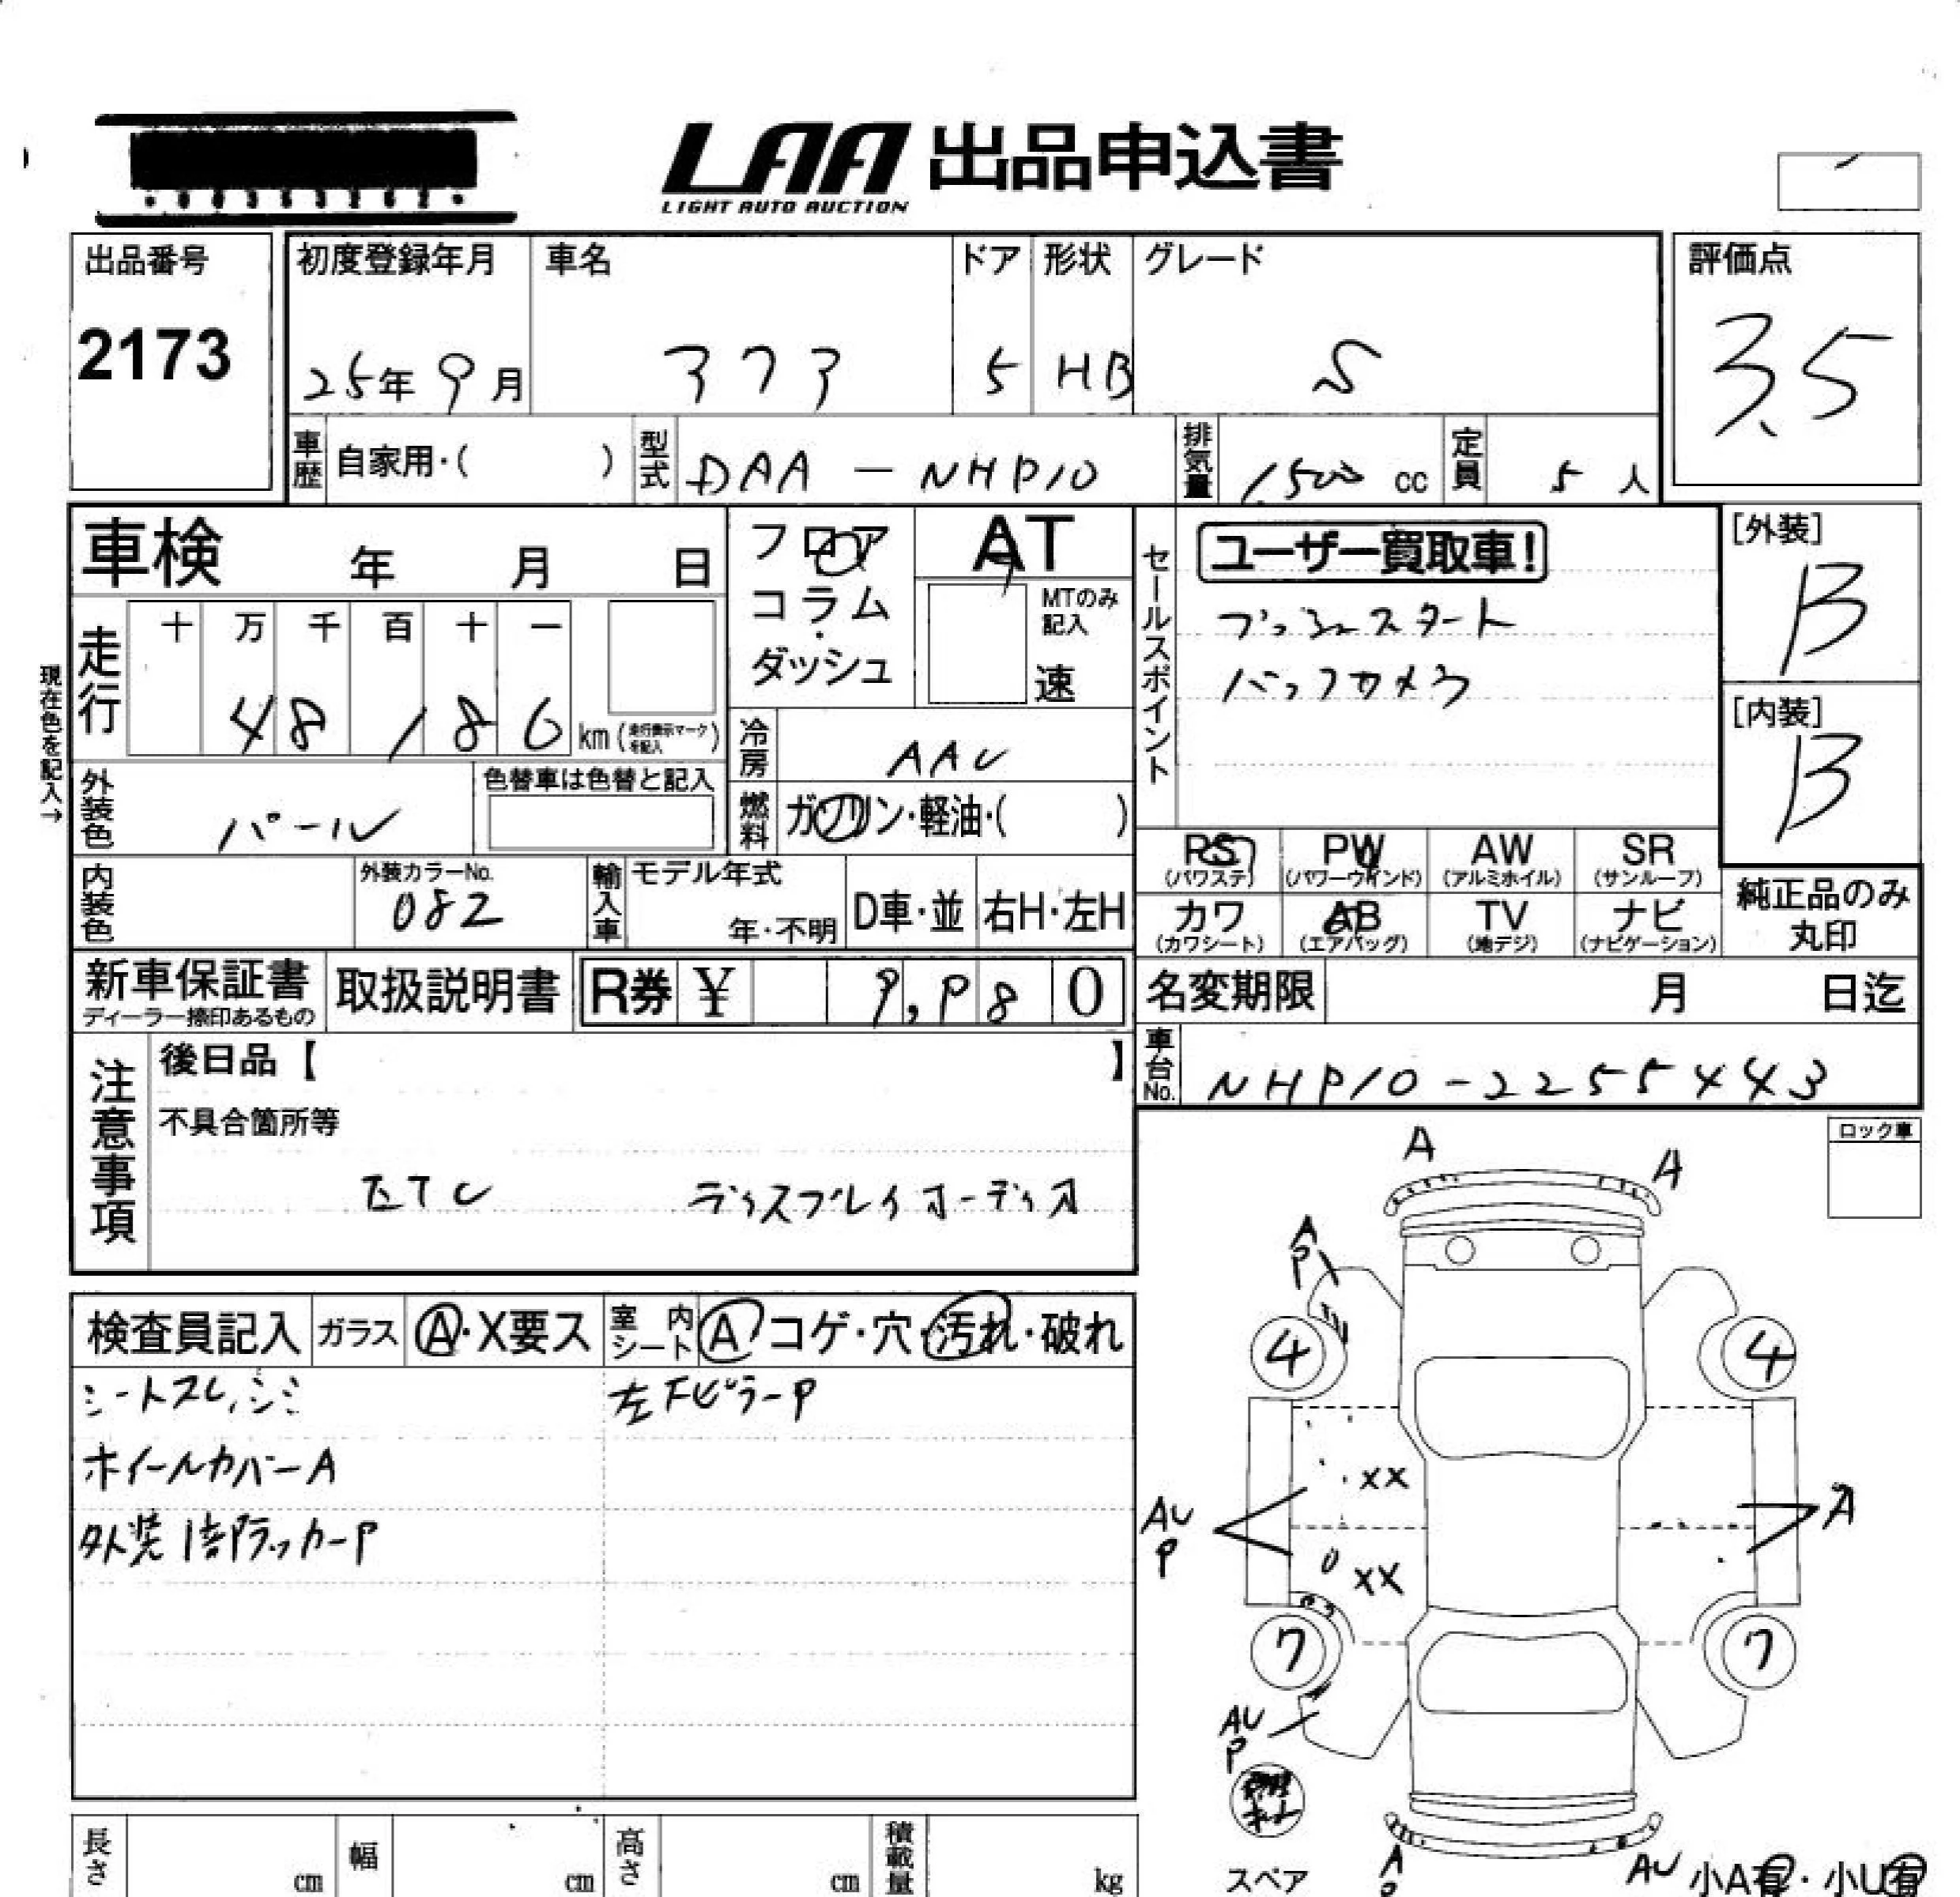 LAA 出品申込書
LIGHT AUTO AUCTION
出品番号
2173
初度登録年月
25年9月
車名
アクア
ドア
5
形状
HB
グレード
S
評価点
3.5
車歴
自家用・(　　)
型式
DAA-NHP10
排気量
1,500 cc
定員
5人
車検　年　月　日
フロア
コラム
・
ダッシュ
AT
MTのみ
記入
速
セールスポイント
ユーザー買取車!
プッシュスタート
バックカメラ
[外装]
B
[内装]
B
現在色を記入→
走行
十 万 千 百 十 一
48,186 km(走行表示マークを記入)
冷房
AAC
外装色
パール
色替車は色替と記入
燃料
ガソリン・軽油・(　　)
内装色
外装カラーNo.
082
輸入車
モデル年式
年・不明
D車・並
右H・左H
PS
(パワステ)
PW
(パワーウインド)
AW
(アルミホイル)
SR
(サンルーフ)
カワ
(カワシート)
AB
(エアバッグ)
TV
(地デジ)
ナビ
(ナビゲーション)
純正品のみ
丸印
新車保証書
ディーラー捺印あるもの
取扱説明書
R券 ¥ 9,980
名変期限　月　日迄
車台No.
NHP10-2255443
注意事項
後日品【　　】
不具合箇所等
ETC　ディスプレイオーディオ
ロック車
検査員記入
ガラス
A・X要ス
室内シート
A コゲ・穴・汚れ・破れ
シートスレ,シミ
左Fピラーp
ホイールカバーA
外装1部ラッカーP
A
A
A
P
4
4
XX
AU
P
A
XX
7
7
AU
P
スペア
A
AU
小A有・小U有
長さ　cm
幅　cm
高さ　cm
積載量　kg